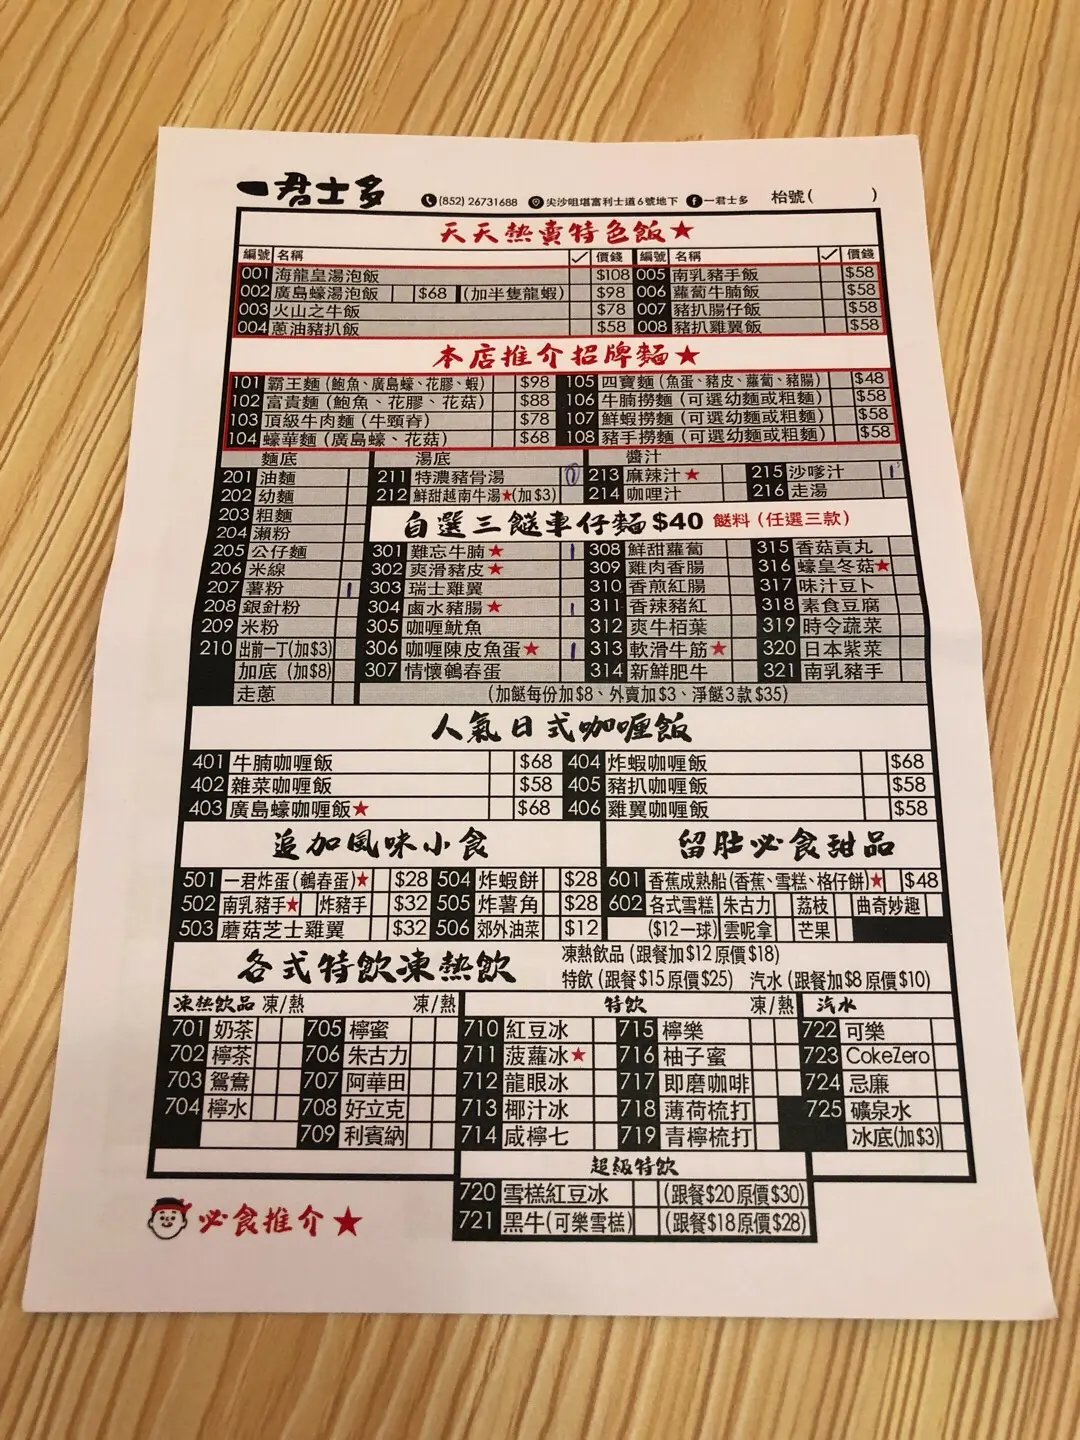 一君士多 (852) 26731688 尖沙咀堪富利士道6號地下 一君士多 枱號( )
天天熱賣特色飯★
編號 名稱 ✓ 價錢 編號 名稱 ✓ 價錢
001 海龍皇湯泡飯 $108 005 南乳豬手飯 $58
002 廣島蠔湯泡飯 $68 (加半隻龍蝦) $98 006 蘿蔔牛腩飯 $58
003 火山之牛飯 $78 007 豬扒腸仔飯 $58
004 蔥油豬扒飯 $58 008 豬扒雞翼飯 $58
本店推介招牌麵★
101 霸王麵 (鮑魚、廣島蠔、花膠、蝦) $98 105 四寶麵 (魚蛋、豬皮、蘿蔔、豬腸) $48
102 富貴麵 (鮑魚、花膠、花菇) $88 106 牛腩撈麵 (可選幼麵或粗麵) $58
103 頂級牛肉麵 (牛頸脊) $78 107 鮮蝦撈麵 (可選幼麵或粗麵) $58
104 蠔華麵 (廣島蠔、花菇) $68 108 豬手撈麵 (可選幼麵或粗麵) $58
麵底 湯底 醬汁
201 油麵 211 特濃豬骨湯 213 麻辣汁★ 215 沙嗲汁
202 幼麵 212 鮮甜越南牛湯★(加$3) 214 咖哩汁 216 走湯
203 粗麵 自選三餸車仔麵 $40 餸料 (任選三款)
204 瀨粉
205 公仔麵 301 難忘牛腩★ 308 鮮甜蘿蔔 315 香菇貢丸
206 米線 302 爽滑豬皮★ 309 雞肉香腸 316 蠔皇冬菇★
207 薯粉 303 瑞士雞翼 310 香煎紅腸 317 味汁豆卜
208 銀針粉 304 鹵水豬腸★ 311 香辣豬紅 318 素食豆腐
209 米粉 305 咖喱魷魚 312 爽牛栢葉 319 時令蔬菜
210 出前一丁(加$3) 306 咖喱陳皮魚蛋★ 313 軟滑牛筋★ 320 日本紫菜
加底 (加$8) 307 情懷鵪春蛋 314 新鮮肥牛 321 南乳豬手
走蔥 (加餸每份加$8、外賣加$3、淨餸3款$35)
人氣日式咖喱飯
401 牛腩咖喱飯 $68 404 炸蝦咖喱飯 $68
402 雜菜咖喱飯 $58 405 豬扒咖喱飯 $58
403 廣島蠔咖喱飯★ $68 406 雞翼咖喱飯 $58
追加風味小食 留肚必食甜品
501 一君炸蛋(鵪春蛋)★ $28 504 炸蝦餅 $28 601 香蕉成熟船(香蕉、雪糕、格仔餅)★ $48
502 南乳豬手★ 炸豬手 $32 505 炸薯角 $28 602 各式雪糕 朱古力 荔枝 曲奇妙趣
503 蘑菇芝士雞翼 $32 506 郊外油菜 $12 ($12一球) 雲呢拿 芒果
各式特飲凍熱飲 凍熱飲品 (跟餐加$12原價$18)
特飲 (跟餐$15原價$25) 汽水 (跟餐加$8原價$10)
凍熱飲品 凍/熱 凍/熱 特飲 凍/熱 汽水
701 奶茶 705 檸蜜 710 紅豆冰 715 檸樂 722 可樂
702 檸茶 706 朱古力 711 菠蘿冰★ 716 柚子蜜 723 CokeZero
703 鴛鴦 707 阿華田 712 龍眼冰 717 即磨咖啡 724 忌廉
704 檸水 708 好立克 713 椰汁冰 718 薄荷梳打 725 礦泉水
709 利賓納 714 咸檸七 719 青檸梳打 冰底(加$3)
超級特飲
720 雪糕紅豆冰 (跟餐$20原價$30)
721 黑牛(可樂雪糕) (跟餐$18原價$28)
必食推介★